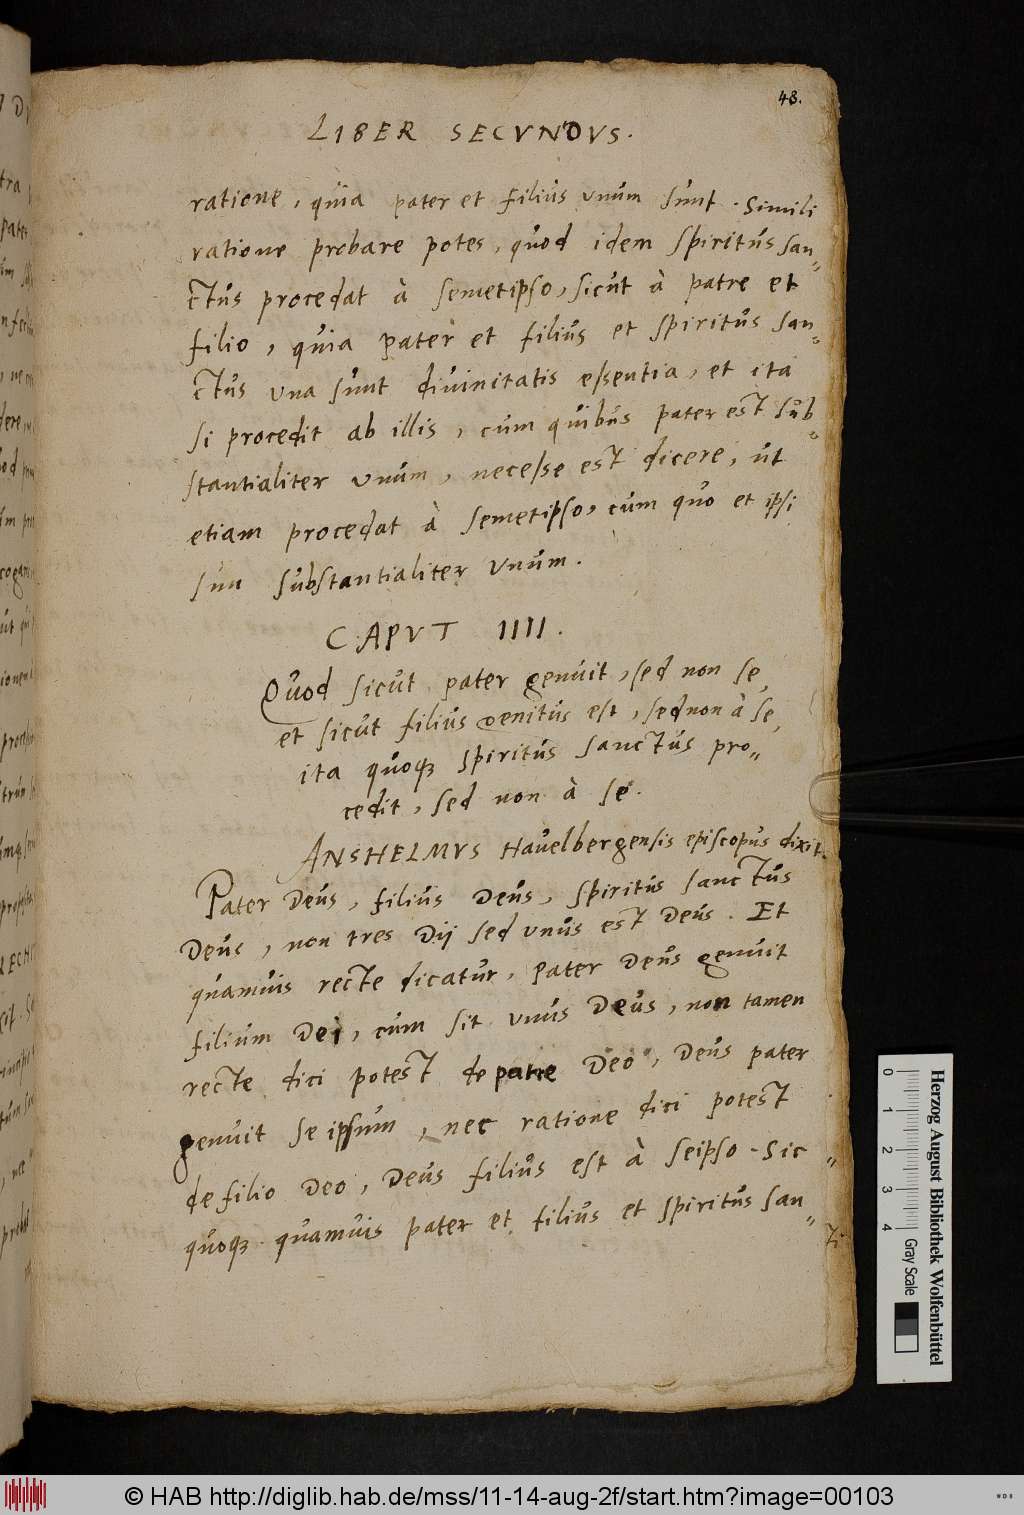 48.
LIBER SECVNDVS.
ratione, quia pater et filius vnum sunt. Simili
ratione probare potes, quod idem spiritus san„
ctus procedat à semetipso, sicut à patre et
filio, quia pater et filius et spiritus san„
ctus vna sunt diuinitatis essentia, et ita
si procedit ab illis, cum quibus pater est sub„
stantialiter vnum, necesse est dicere, ut
etiam procedat à semetipso, cum quo et ipsi
sun substantialiter vnum.
CAPVT IIII.
Quod sicut pater genuit, sed non se,
et sicut filius genitus est, sed non à se,
ita quoq₃ spiritus sanctus pro„
cedit, sed non à se.
ANSHELMVS Hauelbergensis episcopus dixit.
Pater Deus, filius Deus, spiritus sanctus
Deus, non tres Dij sed vnus est Deus. Et
quamuis recte dicatur, Pater Deus genuit
filium Dei, cum sit vnus Deus, non tamen
recte dici potest de patre Deo, Deus pater
genuit se ipsum, nec ratione dici potest
de filio Deo, Deus filius est à seipso. Sic
quoq₃ quamuis pater et filius et spiritus san„
Herzog August Bibliothek Wolfenbüttel
0 1 2 3 4
Gray Scale
© HAB http://diglib.hab.de/mss/11-14-aug-2f/start.htm?image=00103